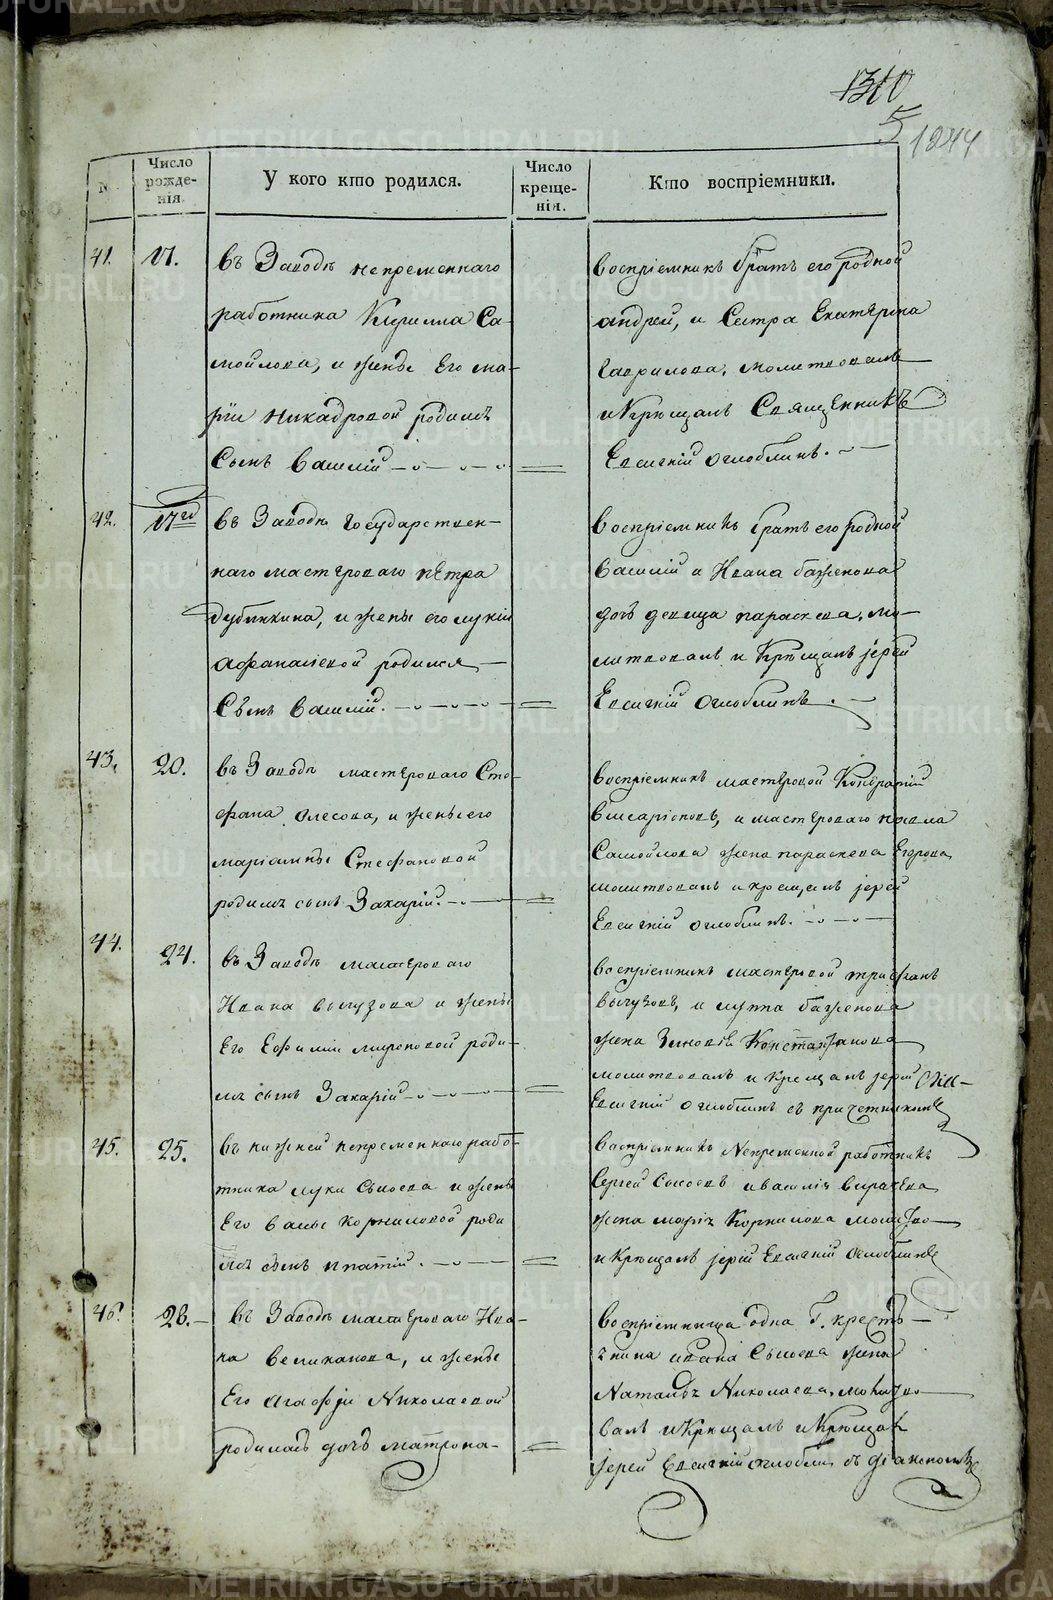 1310
5
1244
№
Число рожде-
нія.
У кого кто родился.
Число креще-
нія.
Кто воспріемники.
41. 17.
въ Заводѣ непременнаго
работника Кирилла Са-
мойлова, и жены Его Ма-
ріи Никадровой родился
Сынъ Василій
воспріемникъ братъ его родной
андрей, и Сестра Екатерина
Гаврилова, молитвовалъ
и Крѣщалъ Священникъ
Евсигній Оглоблинъ.
42. 17го
въ Заводѣ Государствен-
наго мастероваго петра
Дубинкина, и жены его лукіи
афанасіевой родился
Сынъ Василій.
воспріемникъ братъ его родной
Василій и Ивана баженова
дочь девица параскева, мо-
литвовалъ и Крѣщалъ іерей
Евсигній Оглоблинъ.
43. 20.
въ Заводѣ мастероваго Сте-
фана Олесова, и жены его
маріамны Стефановой
родился сынъ Захарій.
воспріемникъ мастеровой Кондратій
висаріоновъ, и мастероваго павла
Самойлова жена параскева Егорова
молитвовалъ и крещалъ іерей
Евсигній оглоблинъ.
44. 24.
въ Заводѣ мастероваго
Ивана вычузова и жены
Его Ефиміи мироновой роди-
лся сынъ Захарій
воспріемникъ мастеровой трифанъ
вычузовъ, и лупа баженова
жена Зиновья Константинова
молитвовалъ и Крещалъ іерей
Евсигній оглоблинъ съ причетники
45. 25.
въ нижней непременнаго работ-
тника луки Сысоева и жены
Его Васы корниловой роди
лся сынъ ипатій.
воспріемникъ Непременной работникъ
Сергей Сысоевъ и василія
жена маріа Корнилова молитво
и Крѣщалъ іерей Евсигній Оглоблинъ
46. 28.
въ Заводѣ мастероваго Ива-
на великанова, и жены
Его Агафьи Николаевой
родилась дочь матрона
воспріемница одна Г. крестья-
нина ивана Сысоева жена
Наталья Николаева, молитво
валъ и Крѣщалъ и Крѣщал
іерей Евсигній оглоблин съ діакономъ
METRIKI.GASO-URAL.RU